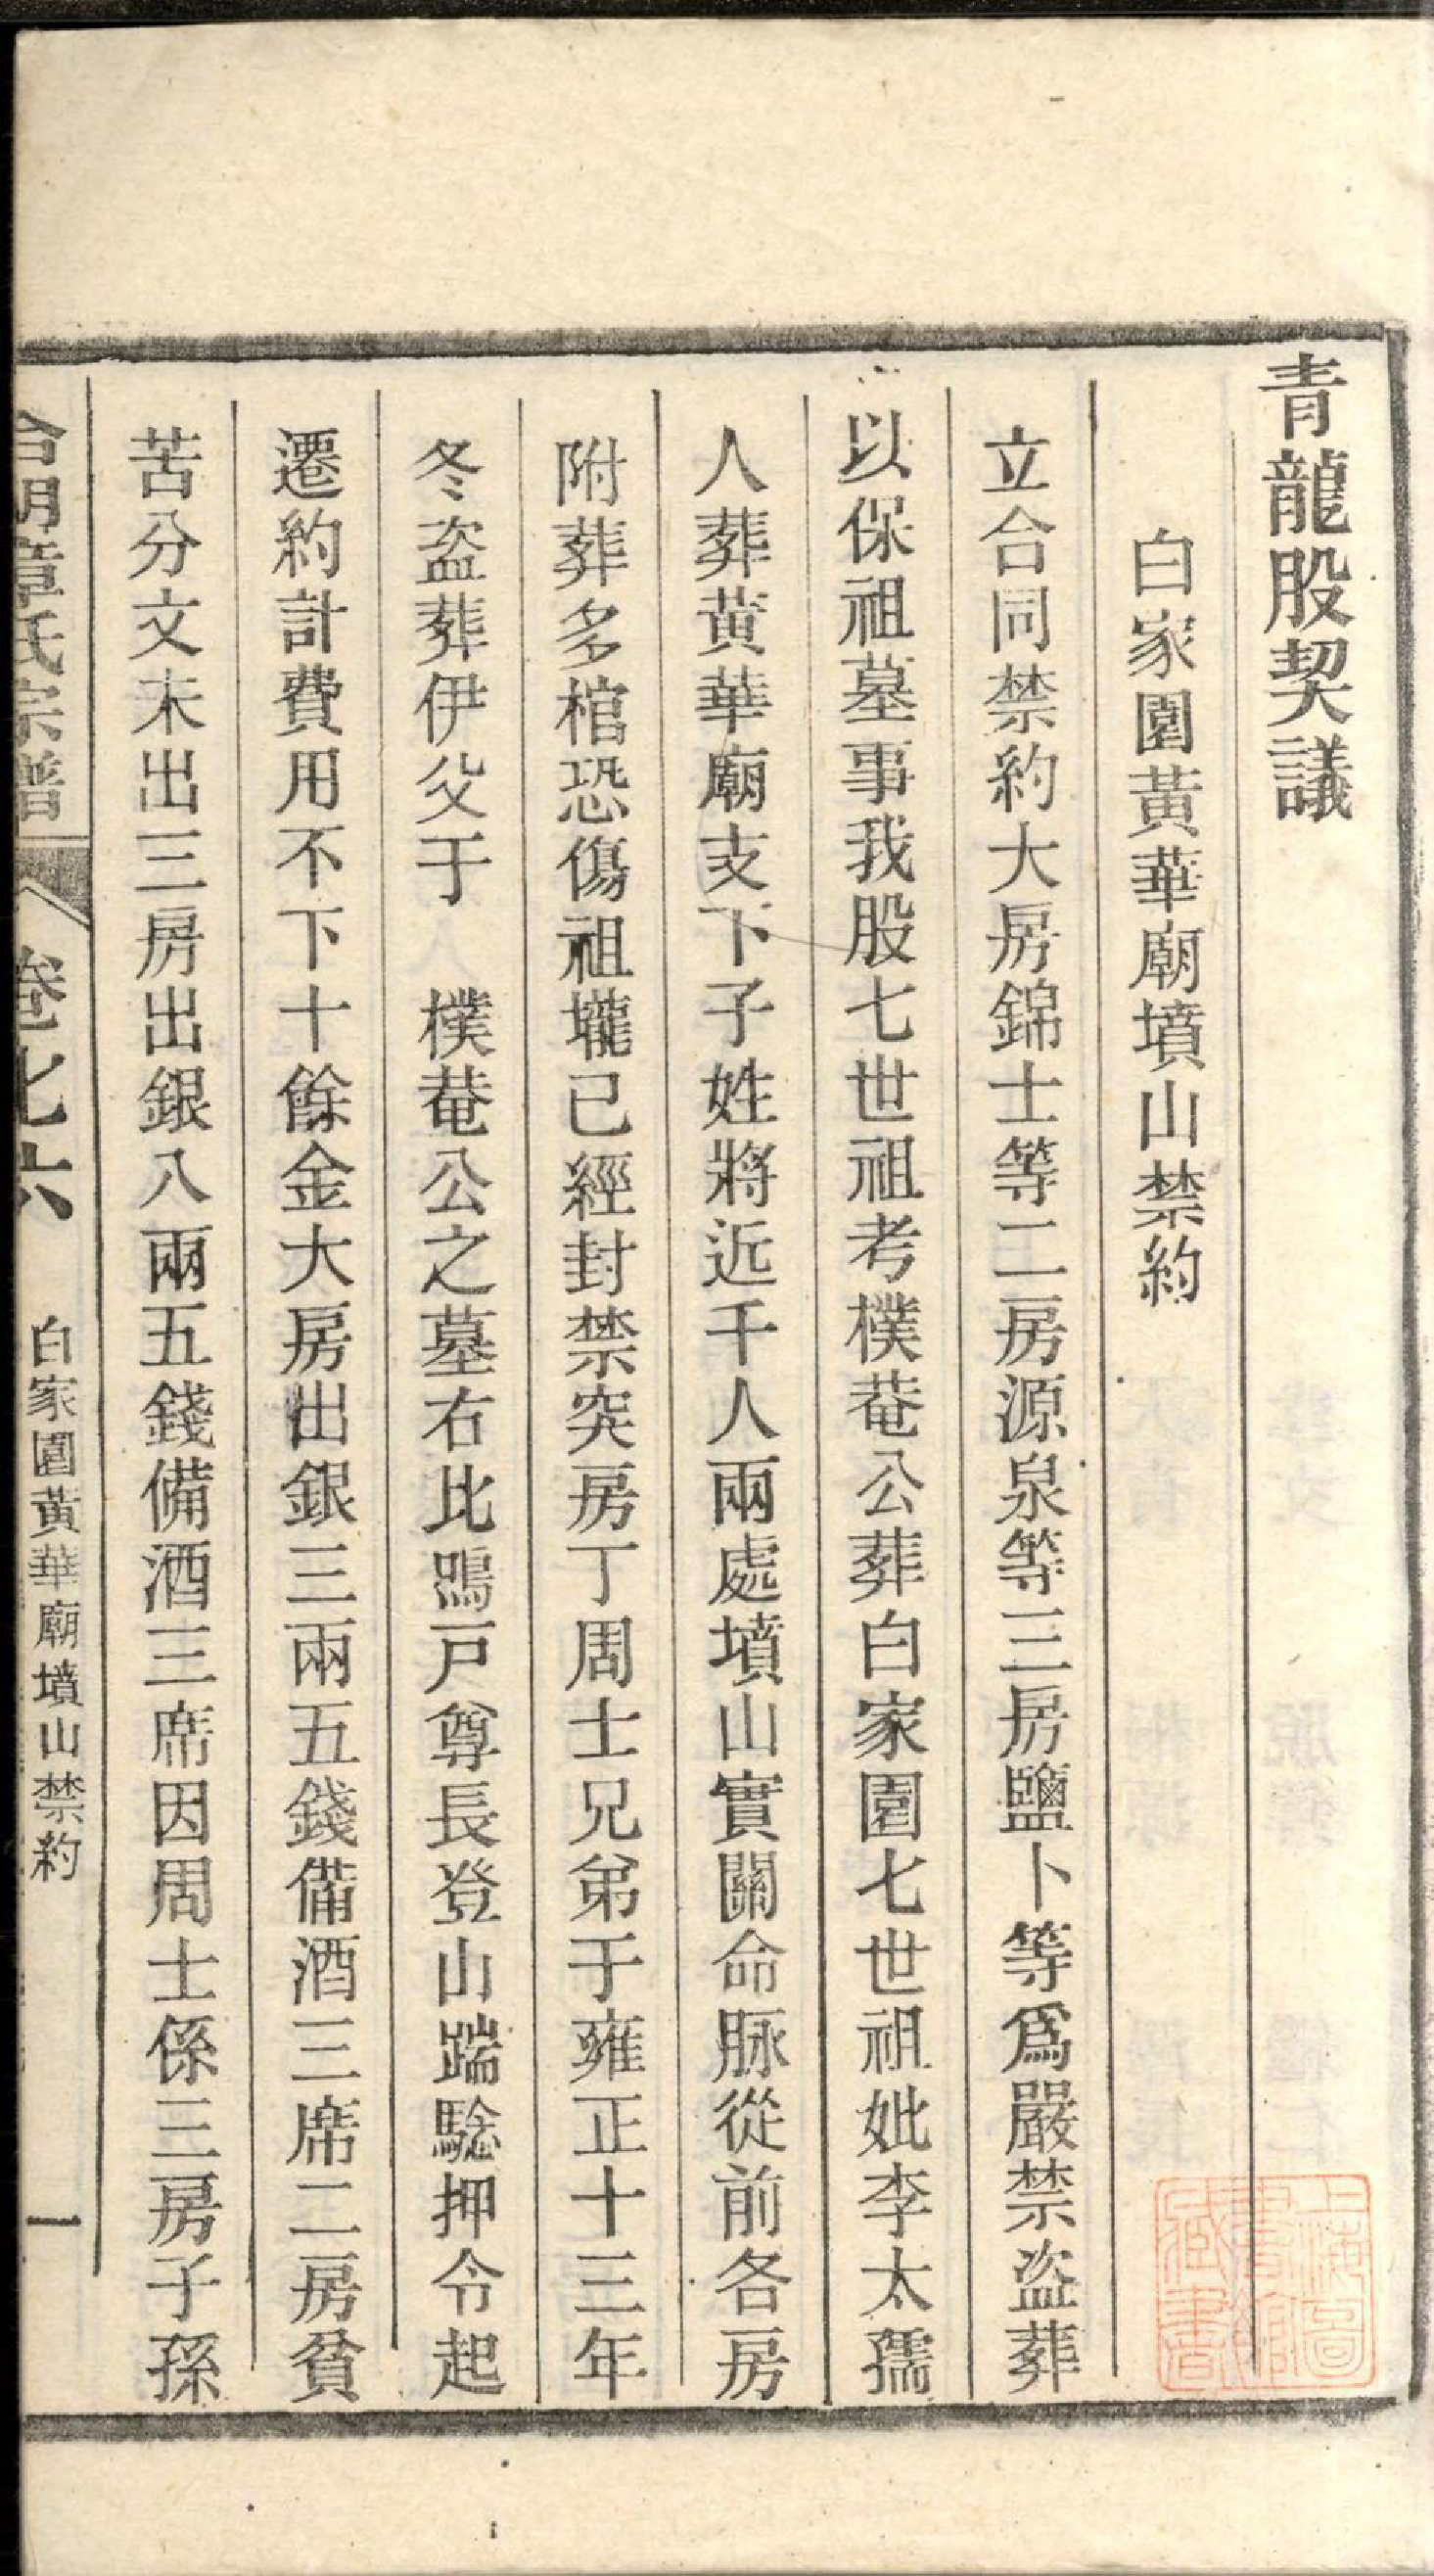 青龍股契議
白家園黃華廟墳山禁約
立合同禁約大房錦士等二房源泉等三房鹽卜等爲嚴禁盜葬
以保祖墓事我股七世祖考樸菴公葬白家園七世祖妣李太孺
人葬黃華廟支下子姓將近千人兩處墳山實關命脉從前各房
附葬多棺恐傷祖壠已經封禁突房丁周士兄弟于雍正十三年
冬盜葬伊父于 樸菴公之墓右比鳴戸尊長登山踹騐押令起
遷約計費用不下十餘金大房出銀三兩五錢備酒三席二房貧
苦分文未出三房出銀八兩五錢備酒三席因周士係三房子孫
章氏宗譜 卷七六 白家園黃華廟墳山禁約 一
上海圖書館藏書